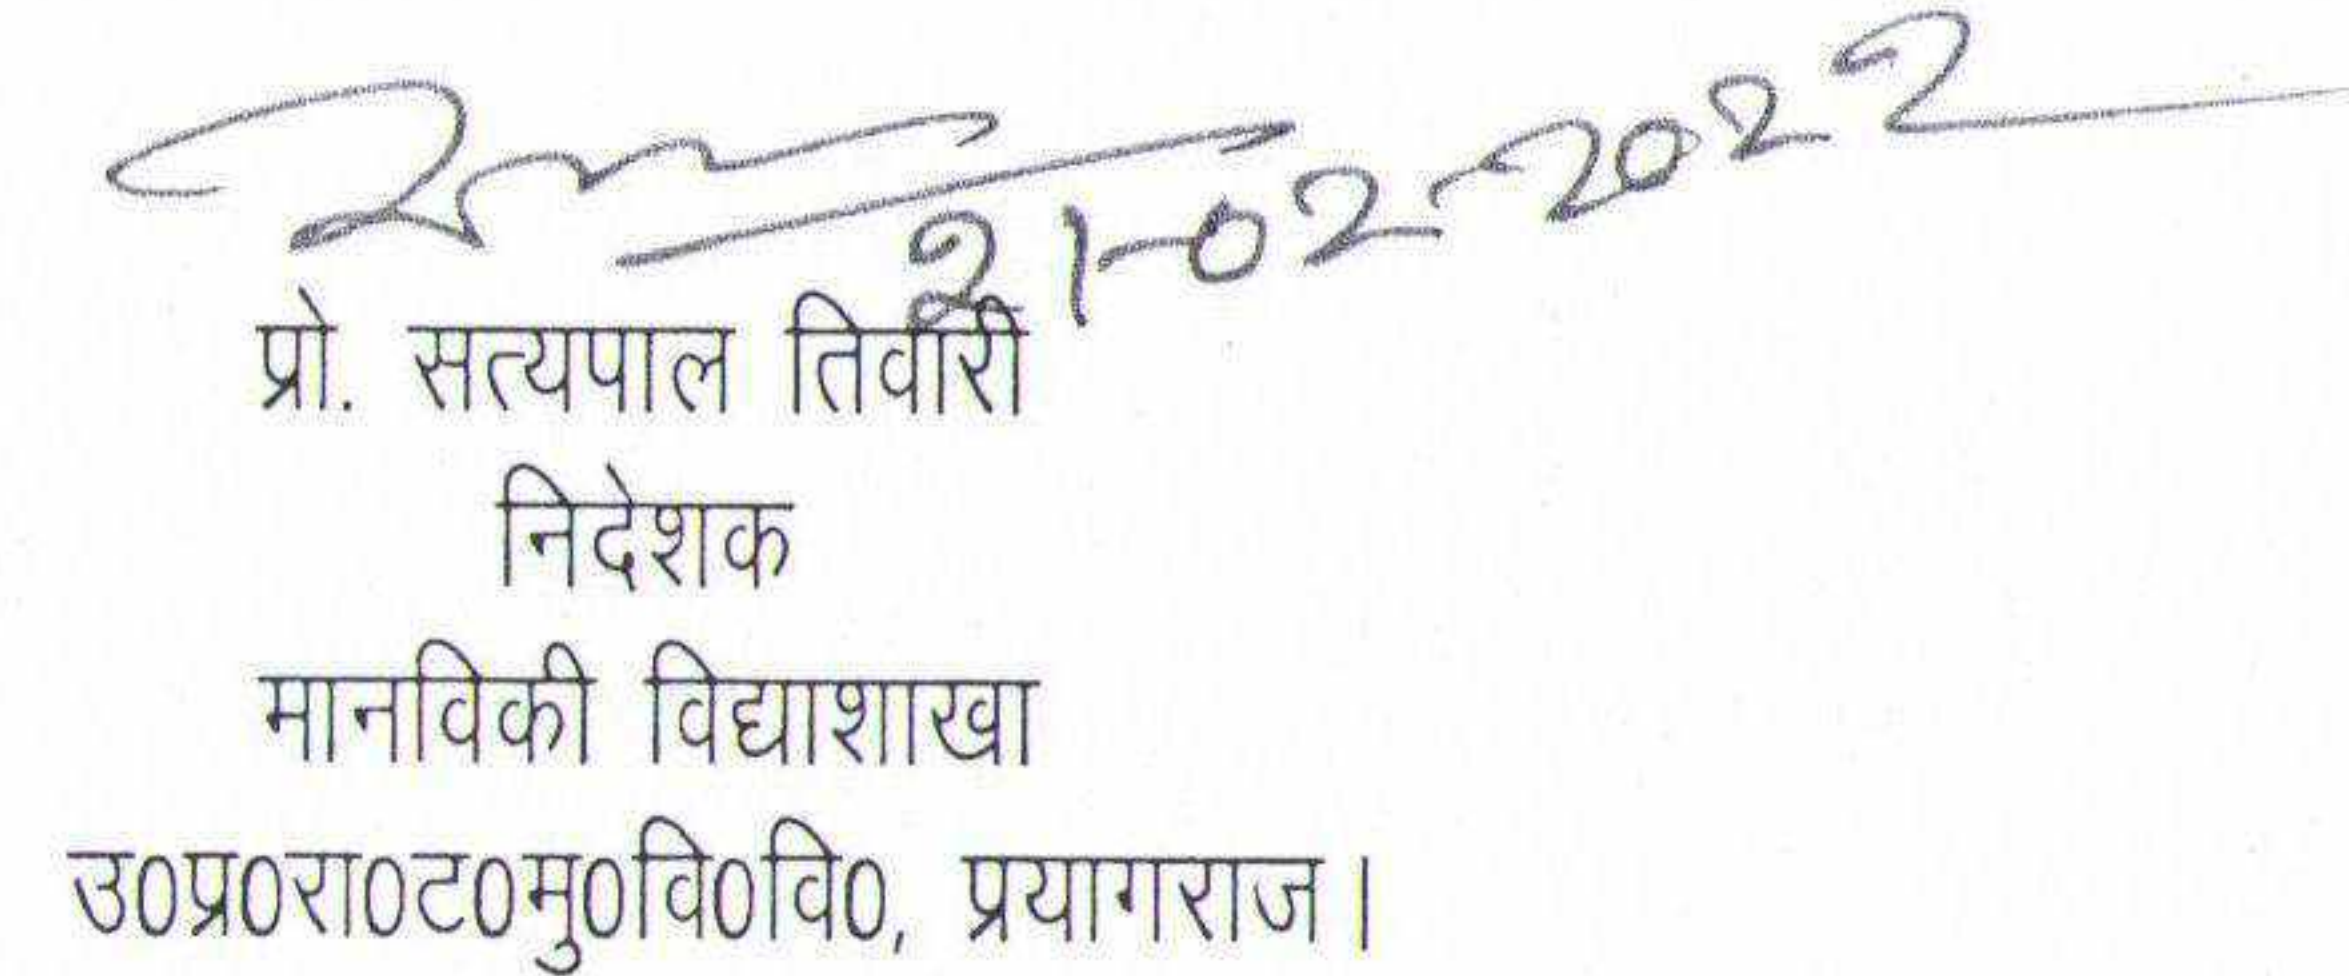 21-02-2022
प्रो. सत्यपाल तिवारी
निदेशक
मानविकी विद्याशाखा
उ0प्र0रा0ट0मु0वि0वि0, प्रयागराज।